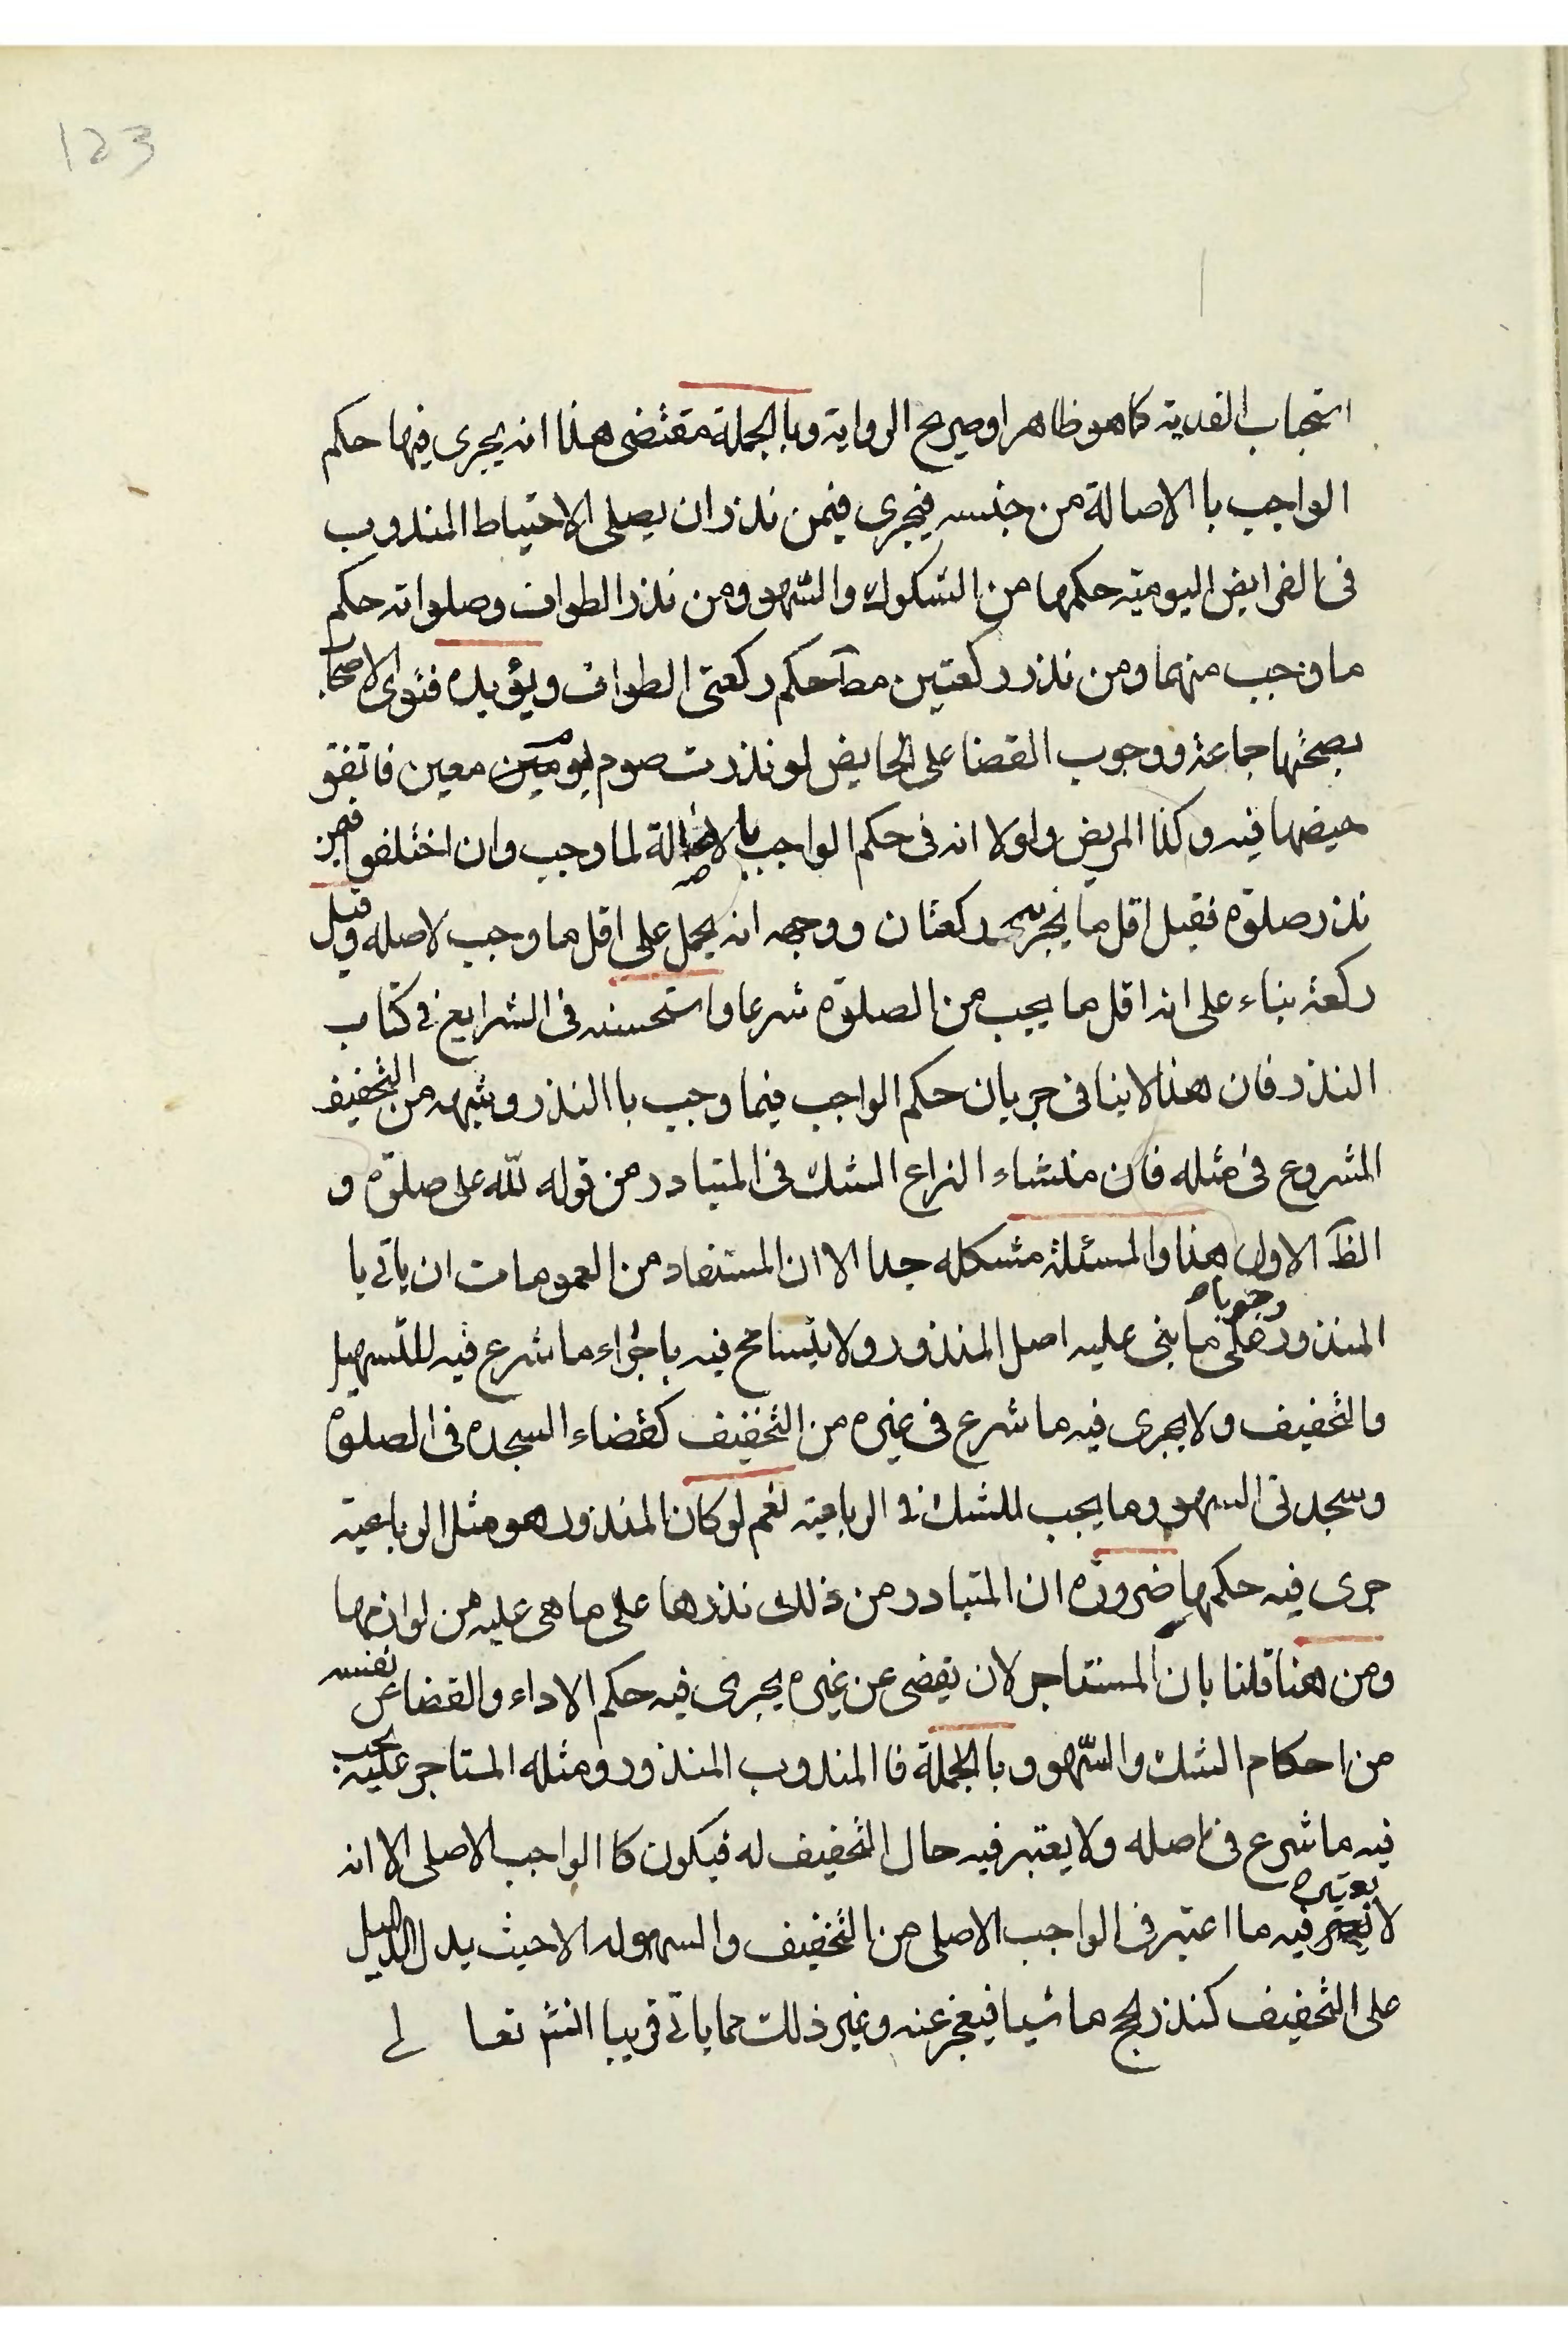 123
استحباب الفدية كما هو ظاهر او صريح الرواية وبالجملة مقتضى هذا انه يجرى فيها حكم
الواجب با الاصالة من جنسه فيجرى فيمن نذر ان يصلى الاحتياط المندوب
فى الفرايض اليومية حكمها من الشكوك والسّهو ومن نذر الطواف وصلواته حكم
ما وجب منهما ومن نذر ركعتين مطآ حكم ركعتى الطواف ويؤيده فتوى الاصحاب
بصحتها جماعة ووجوب القضا على الحايض لو نذرت صوم يوم معين فاتفق
حيضها فيه وكذا المريض ولولا انه فى حكم الواجب بالاصالة لما وجب وان اختلفوا فيمن
نذر صلوة فقيل اقل ما يجزيه ركعتان ووجهه انه يحمل على اقل ما وجب لاصله وقيل
ركعة بناء على انه اقل ما يجب من الصلوة شرعا واستحسنه فى الشرايع فى كتاب
النذر فان هذا لا ينافى جريان حكم الواجب فيما وجب با النذر وشبهه من التخفيف
المشروع فى مثله فان منشاء النزاع الشك فى المتبادر من قوله لله على صلوة و
الظآ الاول هذا والمسئلة مشكله جدا الا ان المستفاد من العمومات ان ياتى با
المنذور وجوبا على ما بنى عليه اصل المنذور ولا يتسامح فيه باجراء ما شرع فيه للتسهيل
والتخفيف ولا يجرى فيه ما شرع فى غيره من التخفيف كقضاء السجده فى الصلوة
وسجدتى السهو وما يجب للشك فى الرباعية نعم لو كان المنذور هو مثل الرباعية
جرى فيه حكمها ضرورة ان المتبادر من ذلك نذرها على ما هى عليه من لوازمها
ومن هنا قلنا بان المستاجر لان يقضى عن غيره يجرى فيه حكم الاداء والقضا عن نفسه
من احكام الشك والسّهو وبالجملة فا المندوب المنذور ومثله المستاجر عليه يجب
فيه ما شرع فى اصله ولا يعتبر فيه حال التخفيف له فيكون كا الواجب الاصلى الا انه
لا يعتبر فيه ما اعتبر فى الواجب الاصلى من التخفيف والسهوله الا حيث يدل الدليل
على التخفيف كنذر الحج ماشيا فيعجز عنه وغير ذلك مما ياتى قريبا انشآ تعا لى